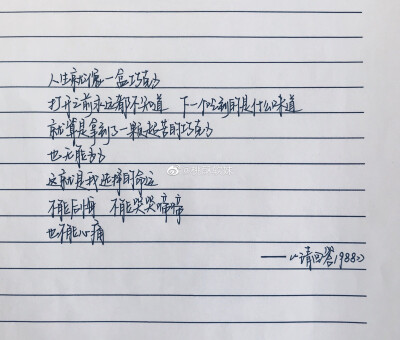 人生就像一盒巧克力
打开之前永远都不知道 下一个吃到的是什么味道
就算是拿到了一颗超苦的巧克力
也无能为力
这就是我选择的命运
不能后悔 不能哭哭啼啼
也不能心痛
——《请回答1988》